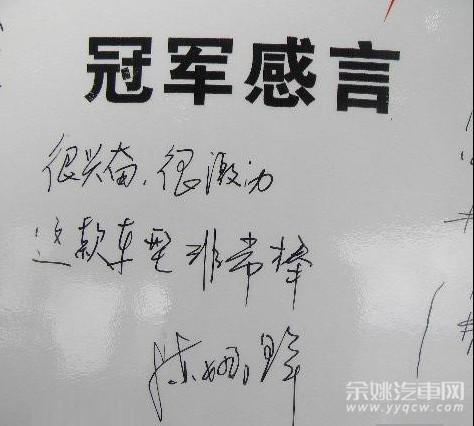 冠军感言
很兴奋,很激动
这款车型非常棒
余姚汽车网
www.yyqcw.com